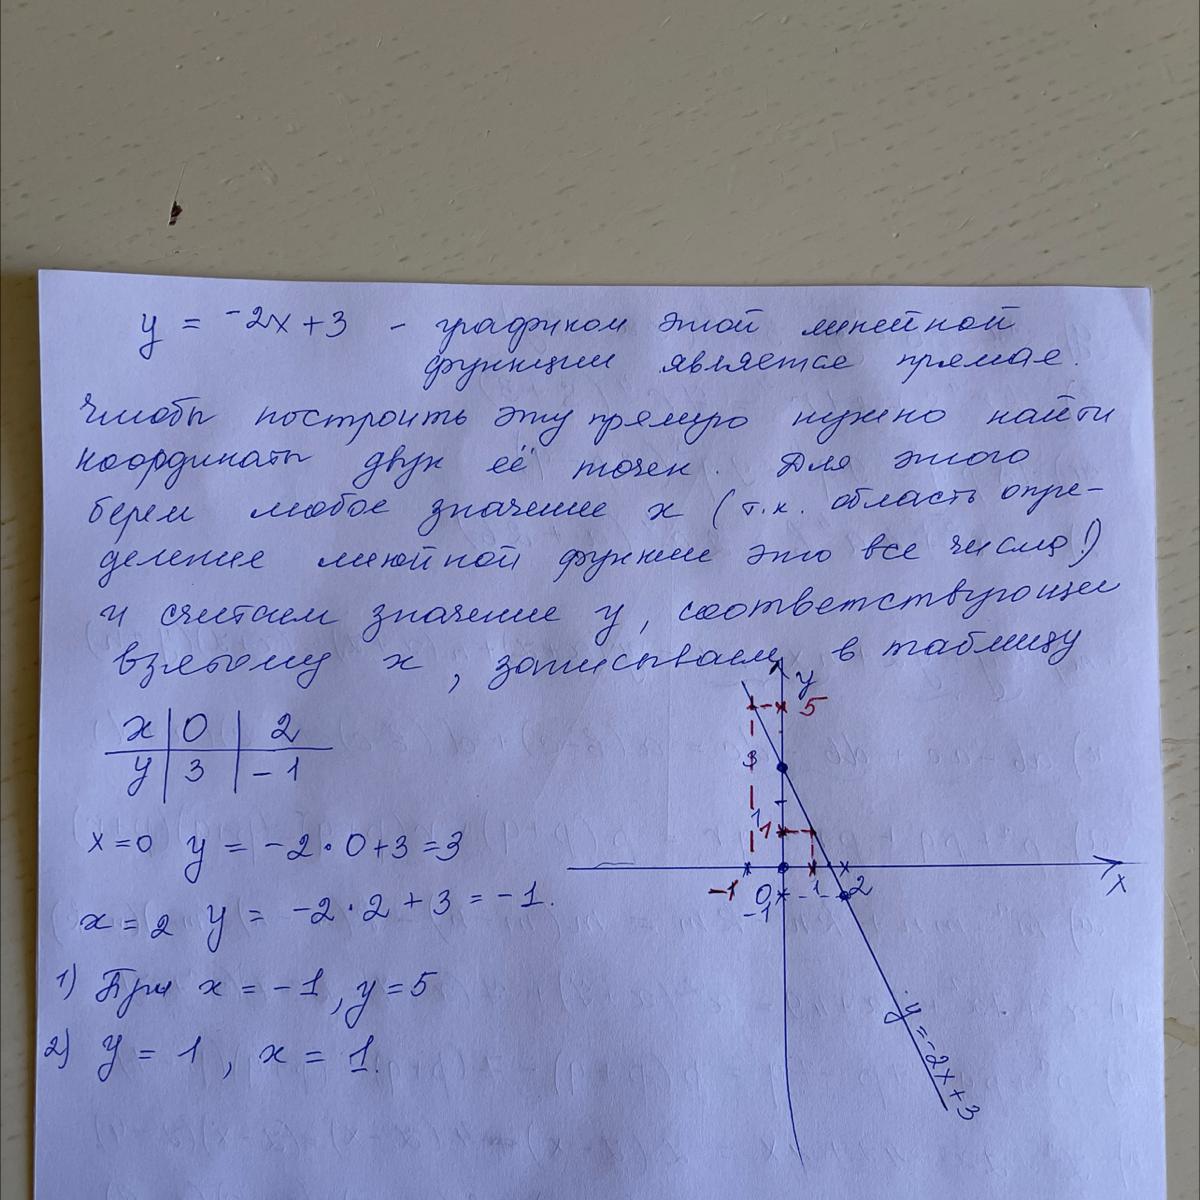 y = -2x+3 - графиком этой линейной
функции является прямая.
Чтобы построить эту прямую нужно найти
координаты двух её точек. Для этого
берем любое значение x (т.к. область опре-
деление линейной функции это все числа!)
и считаем значение y, соответствующее
взятому x, записываем в таблицу
x 0 2
y 3 -1
x=0 y = -2·0+3=3
x=2 y = -2·2+3=-1.
1) При x=-1, y=5
2) y = 1, x = 1.
y
5
3
1
1
-1 0 1 2 x
-1
y=-2x+3